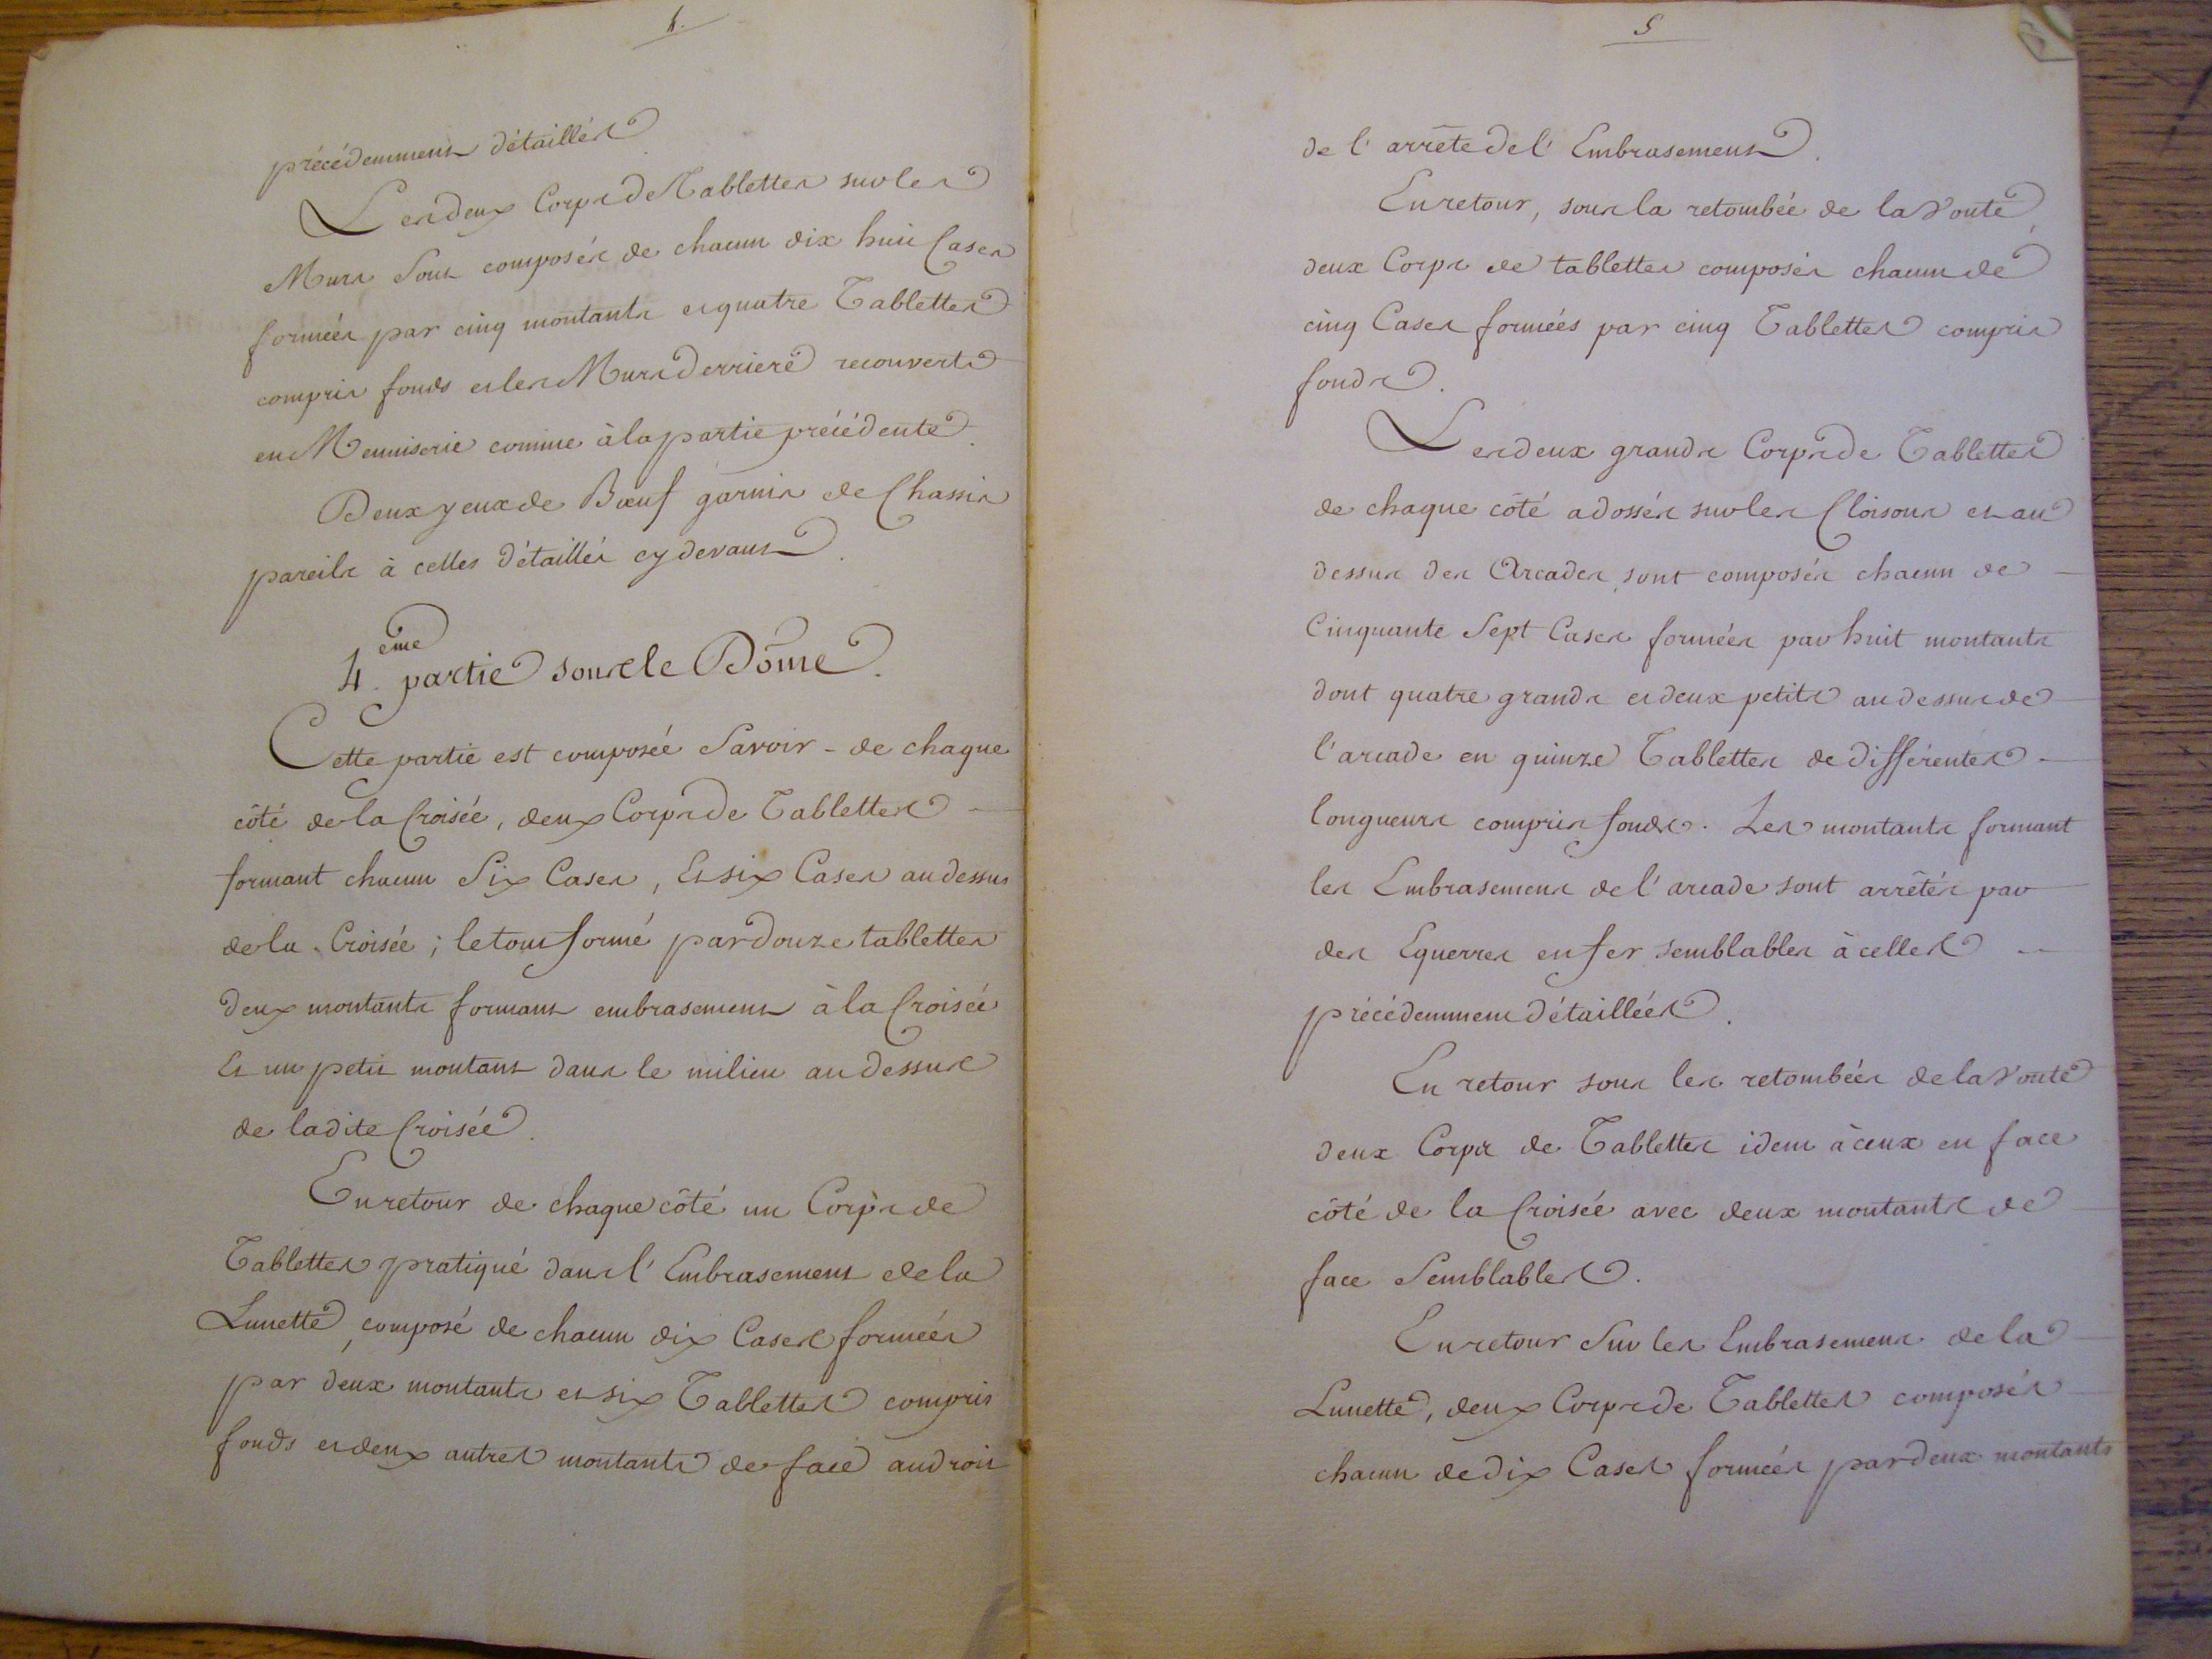 4.
précédemment détaillés
Les deux Corps de Tablettes sur les
Murs Sont composés de chacun dix huit Cases
formées par cinq montants et quatre Tablettes
compris fonds et les Murs derriere recouverts
en Menuiserie comme à la partie précédente.
Deux yeux de Bœuf garnis de Chassis
pareils à celles détaillés cy devant.
4.eme partie sous le Dôme.
Cette partie est composée Savoir - de chaque
côté de la Croisée, deux Corps de Tablettes
formant chacun Six Cases, Et six Cases au dessus
de la Croisée; le tout formé par douze tablettes
deux montants formant embrasement à la Croisée
Et un petit montant dans le milieu au dessus
de la dite Croisée.
En retour de chaque côté un Corps de
Tablettes pratiqué dans l'Embrasement de la
Lunette, composé de chacun dix Cases formées
par deux montants et six Tablettes compris
fonds et deux autres montants de face au droit
5
de l'arrête de l'Embrasement.
En retour, sous la retombée de la Voute,
deux Corps de tablettes composés chacun de
cinq Cases formées par cinq Tablettes compris
fonds.
Les deux grands Corps de Tablettes
de chaque côté adossés sur les Cloisons et au
dessus des Arcades, sont composés chacun de
Cinquante Sept Cases formées par huit montants
dont quatre grands et deux petits au dessus de
l'arcade en quinze Tablettes de différentes
longueurs compris fonds. Les montants formant
les Embrasemens de l'arcade sont arrêtés par
des Equerres en fer semblables à celles
précédemment détaillées.
En retour sous les retombées de la Voute
deux Corps de Tablettes idem à ceux en face
côté de la Croisée avec deux montants de
face Semblables.
En retour Sur les Embrasemens de la
Lunette, deux Corps de Tablettes composés
chacun de dix Cases formées par deux montants